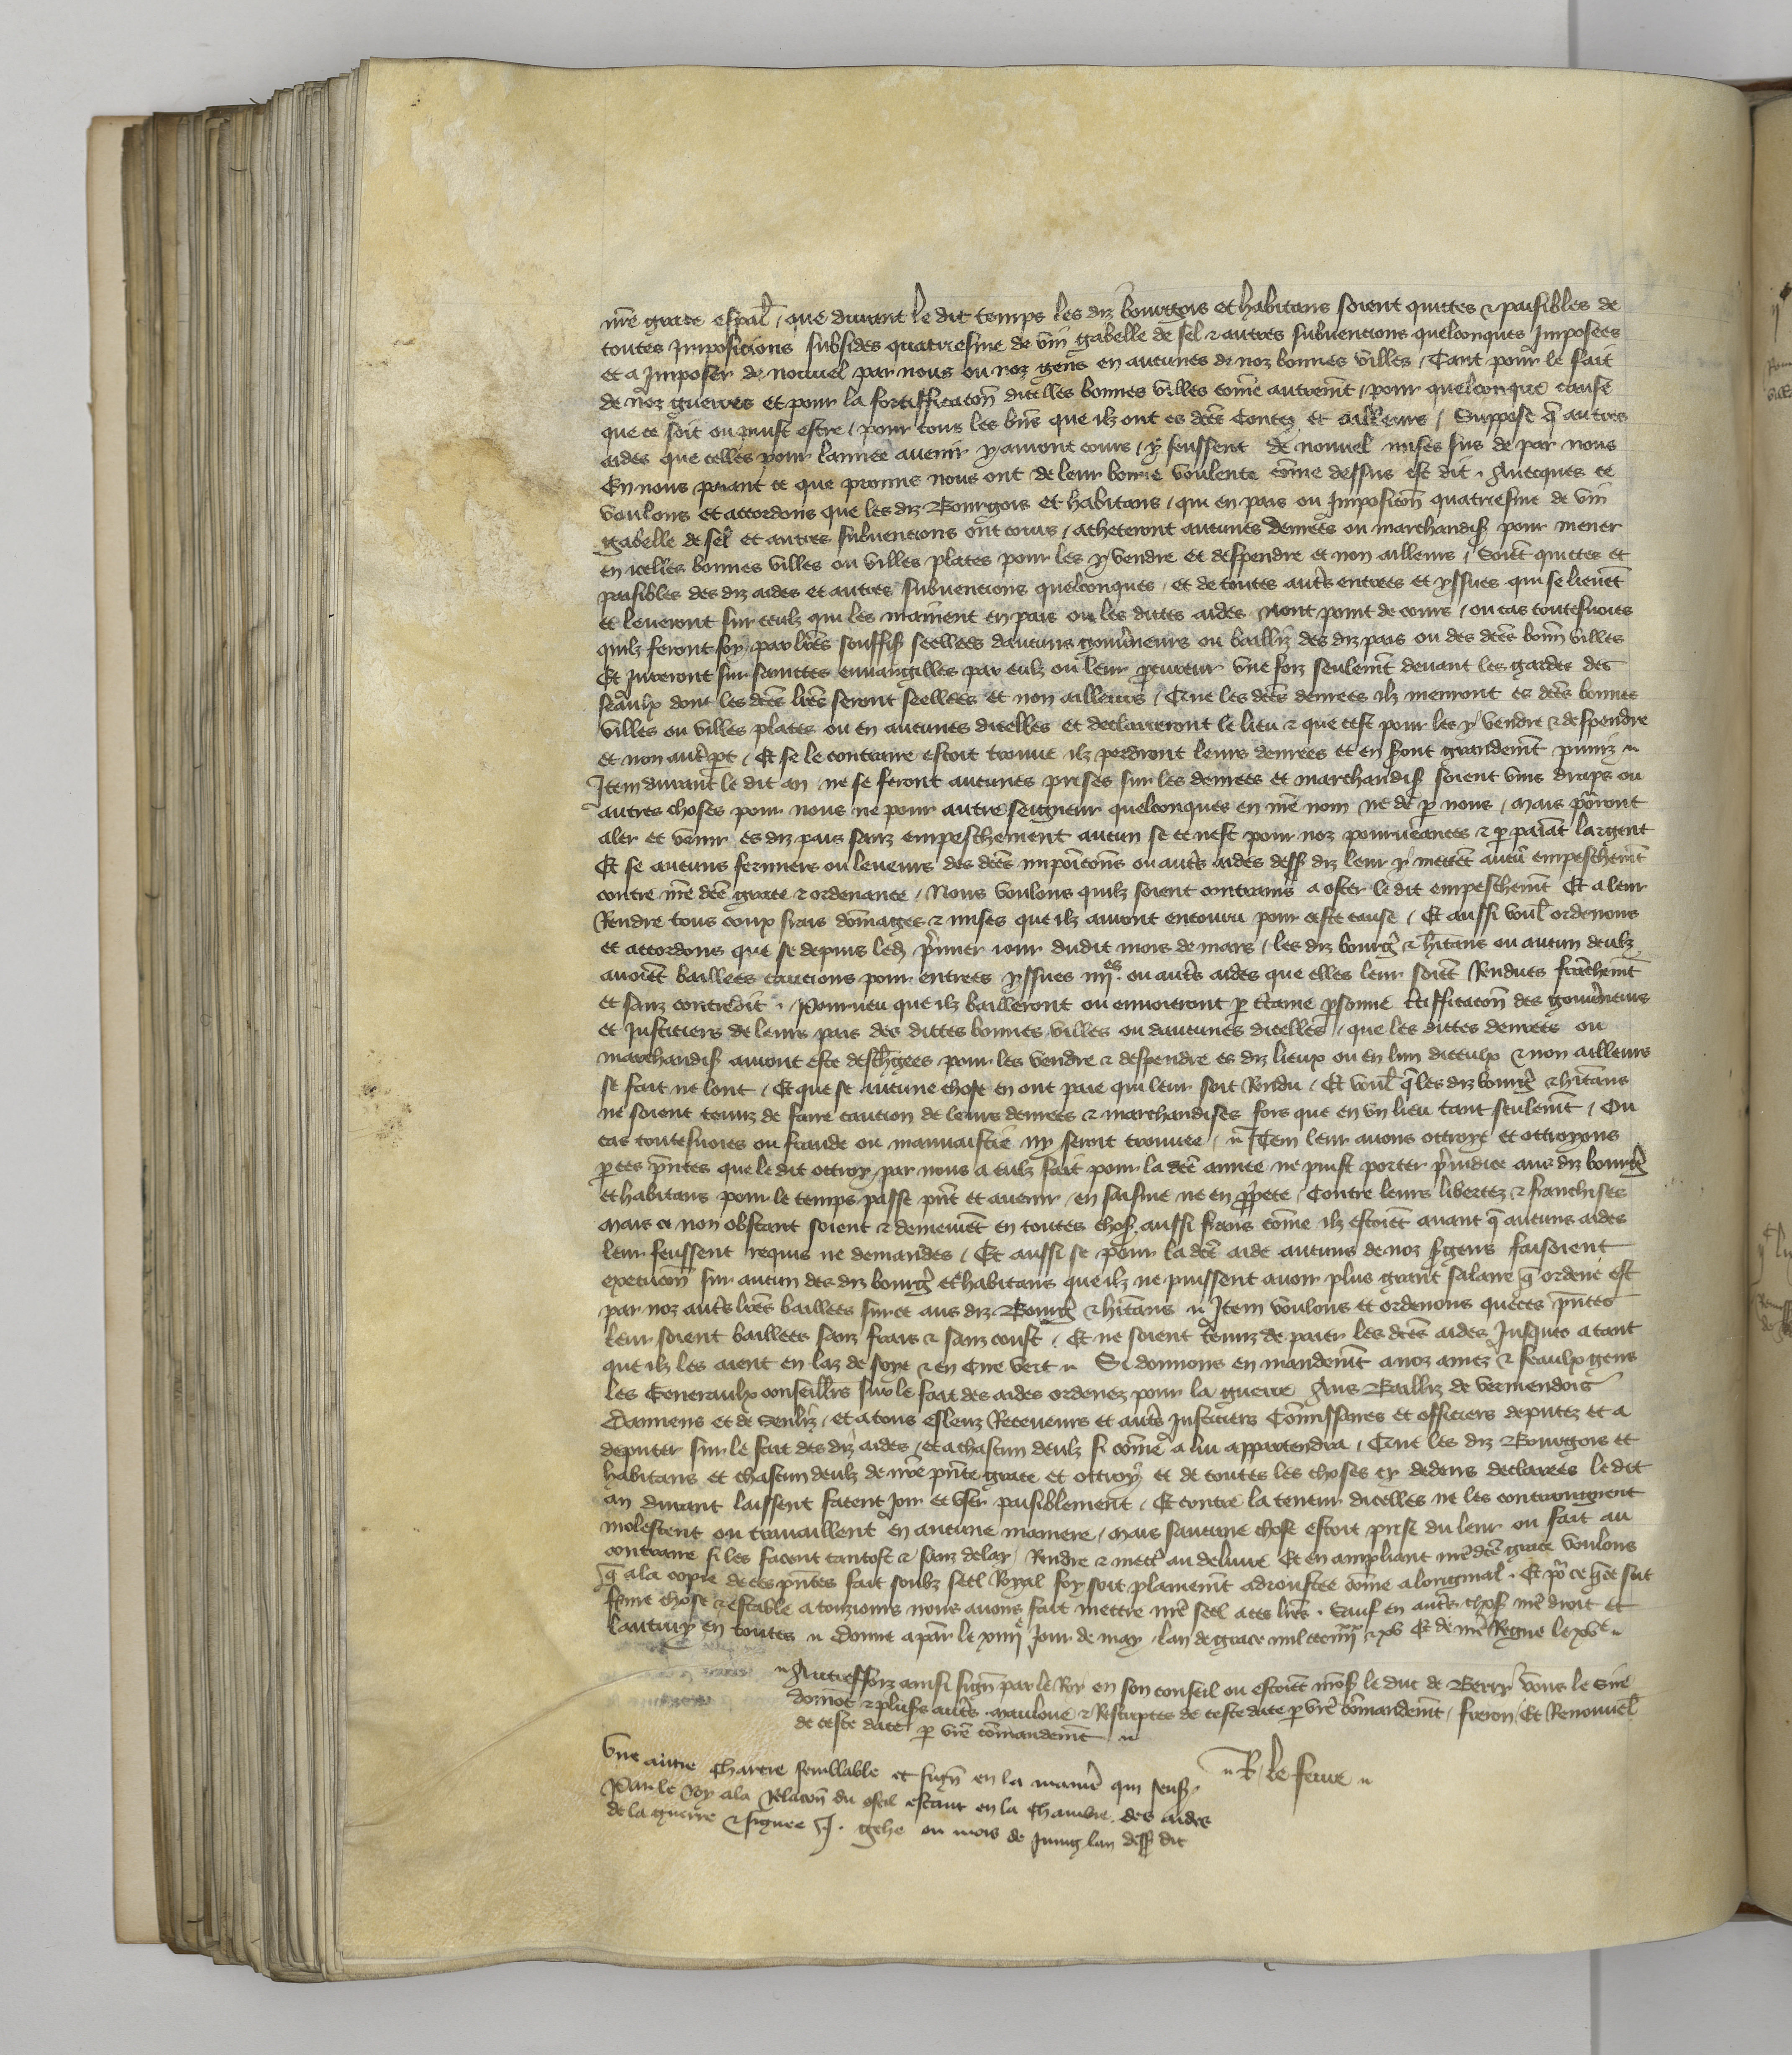 nr̄e grace esp̄al / que durant le dit temps les diz bourgois et habitans soient quittes & paisibles de
toutes Imposicions subsides quatriesme de vin gabelle de sel & autres subvencions quelconques Imposees
et a Imposer de nouvel par nous ou noz gens en aucunes de noz bonnes villes / Tant pour le fait
de noz guerres et pour la fortifficacōn dicelles bonnes villes com̄e autrem̄t / pour quelconque cause
que ce soit ou puist estre / pour tous les biēs que ilz ont es dc̄es Contez et ailleurs / Suppose q̄ autres
aides que celles pour lannee avenir y auront cours / y feussent de nouvel mises sus de par nous
En nous paiant ce que promis nous ont de leur bonne voulente com̄e dessus est dit . Avecques ce
voulons et accordons que les diz Bourgois et habitans / qui en pais ou Imposicōn quatriesme de vin
gabelle de sel et autres subvencions ont cours / acheteront aucunes denrees ou marchandis̄ pour mener
en icelles bonnes villes ou villes plates pour les y vendre et despendre et non ailleurs / Soiēt quittes et
paisibles des diz aides et autres subvencions quelconques / et de toutes aut̄s entrees et yssues qui se lievēt
et leveront sur ceulz qui les mainent en pais ou les dittes aides nont point de cours / ou cas toutesvoies
quilz feront foy par lr̄es souffis̄ seellees daucuns gouv̄neurs ou bailliz des diz pais ou des dc̄es bonn̄ villes
Et Jureront sur saintes euvangilles par eulz ou leur p̄cureur une foiz seulem̄t devant les gardes des
seaulx dont les dc̄es lr̄es seront seellees et non ailleurs / Que les dc̄es denrees ilz menront es dc̄es bonnes
villes ou villes plates ou en aucunes dicelles et declaireront le lieu & que cest pour les y vendre & despendre
et non aut̄ pt / Et se le contraire estoit trouve ilz perdront leurs denrees et en s̄ont grandem̄t puniz
Item durant le dit an ne se feront aucunes prises sur les denrees et marchandis̄ soient vins draps ou
autres choses pour nous ne pour autre seigneur quelconques en nr̄e nom ne de p nous / mais pōrront
aler et venir es diz pais sanz empeschement aucun se ce nest pour noz pourveances & p paiāt largent
Et se aucuns fermiers ou leveurs des dc̄es imposicōns ou aut̄s aides dess̄ diz leur y mettēt aucū empeschem̄t
contre nr̄e dc̄e grace & ordenance / Nous voulons quilz soient contrains a oster le dit empeschem̄t Et a leur
Rendre tous coux frais dom̄ages & mises que ilz auront encouru pour ceste cause / Et aussi voul̄ ordenons
et accordons que se depuis led̄ p̄mier iour dudit mois de mars / les diz bourḡ & hītans ou aucun deulz
avoiēt baillees caucions pour entrees yssues iiijes. ou aut̄s aides que elles leur soiēt Rendues franchem̄t
et sanz contredit . Pourveu que ilz bailleront ou envoieront p c̄taine p̄sonne c̄tifficacōn des gouv̄neurs
et Justiciers de leurs pais des dittes bonnes villes ou daucunes dicelles / que les dittes denrees ou
marchandis̄ auront este desch̄gees pour les vendre & despendre es diz lieux ou en lun diceulx & non ailleurs
se fait ne lont / Et que se aucune chose en ont paie qui leur soit Rendu / Et voul̄ q̄ les diz bourḡ & hītans
ne soient tenuz de faire caucion de leurs denrees & marchandises fors que en un lieu tant seulem̄t / Ou
cas toutesvoies ou fraude ou mauvaistie ny seroit trouvee / Item leur avons ottroye et ottroyons
p ces p̄ntes que le dit ottroy par nous a eulz fait pour la dc̄e annee ne puist porter p̄iudice aus diz bourḡ
et habitans pour le temps passe p̄nt et avenir en saisine ne en p̄p̄ete / Contre leurs libertez & franchises
mais ce non obstant soient & demeurēt en toutes chos̄ aussi frans com̄e ilz estoiēt avant q̄ aucuns aides
leur feussent requis ne demandes / Et aussi se pour la dc̄e aide aucuns de noz s̄gens faisoient
execucōn sur aucun des diz bourḡ et habitans que ilz ne puissent avoir plus grant salaire q̄ ordene est
par noz aut̄s lr̄es baillees sur ce aus diz Bourḡ & hītans Item voulons et ordenons que ces p̄ntes
leur soient baillees sanz frais & sanz coust / Et ne soient tenuz de paier les dc̄es aides Jusques a tant
que ilz les aient en laz de soye & en cire vert Si donnons en mandem̄t a noz amez & feaulx gens
les Generaulx conseill̄rs sur le fait des aides ordenez pour la guerre Aus Bailliz de Vermendois
Damiens et de Senliz / et a tous esleuz Receveurs et aut̄s Justiciers Com̄issaires et officiers deputez et a
deputer sur le fait des diz aides / et a chascun deulz si com̄e a lui appartendra / Que les diz Bourgois et
habitans et chascun deulz de nr̄e p̄nte grace et ottroy et de toutes les choses cy dedens declarees le dit
an durant laissent facent Joir et user paisiblement / Et contre la teneur dicelles ne les contraingnent
molestent ou travaillent en aucune maniere / mais saucune chose estoit prise du leur ou fait au
contraire si les facent tantost & sanz delay Rendre & mett̄ au delivre Et en ampliant nr̄e dc̄e grace voulons
q̄ a la copie de ces p̄ntes fait soubz seel Royal foy soit plainem̄t adioustee com̄e a loriginal . Et p̄r ce q̄ ce soit
ferme chose & estable a tousiours nous avons fait mettre nr̄e seel a ces lr̄es . Sauf en aut̄s chos̄ nr̄e droit et
lautruy en toutes Donne a par̄ le xiiije Jour de may lan de grace mil ccc iiijxx & xv Et de nr̄e Regne le xve
Autresfoiz ainsi sign̄ par le Roy en son conseil ou estoiēt mōs̄ le duc de Berry vous le sire
domōt & plus̄s aut̄s . Mauloue & Rescriptes de ceste date p vr̄e com̄andem̄t / Freron / Et Renouvel̄
de ceste date p vr̄e com̄andem̄t
Une autre chartre semblable et sign̄ en la manie᷑ qui sens̄
Par le Roy a la Relacōn du cōseil estant en la chambre des aides
de la guerre & signee J. gehe ou mois de Juing lan dess̄ dit
R / le fevre